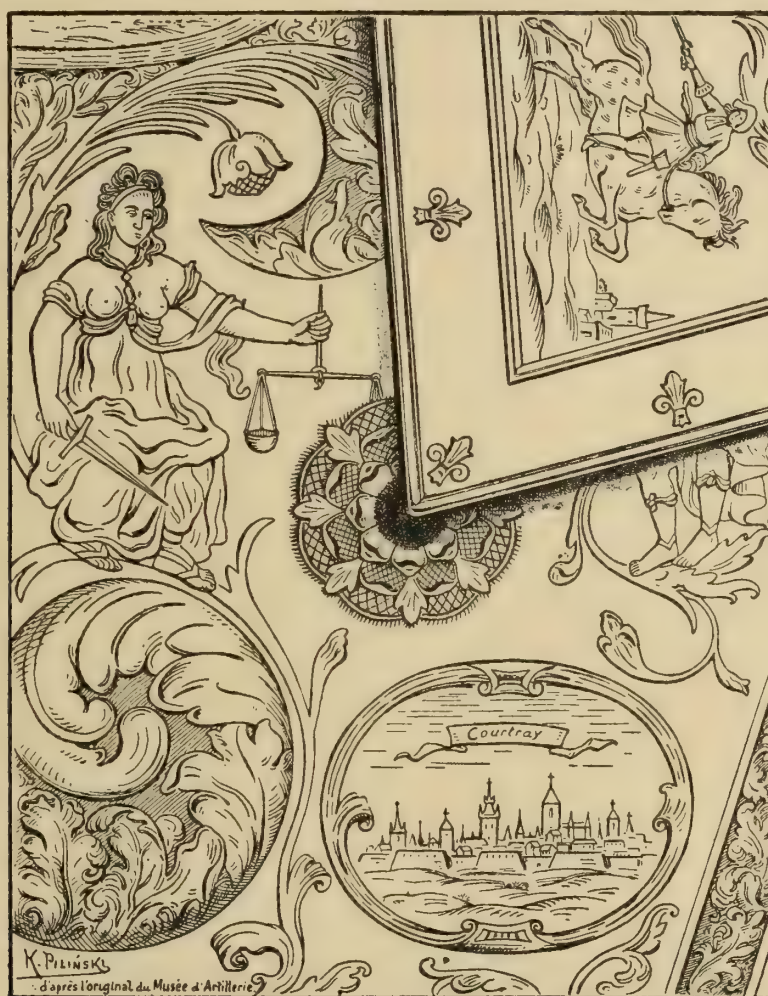 Courtray
K. PILIŃSKI
d'après l'original du Musée d'Artillerie